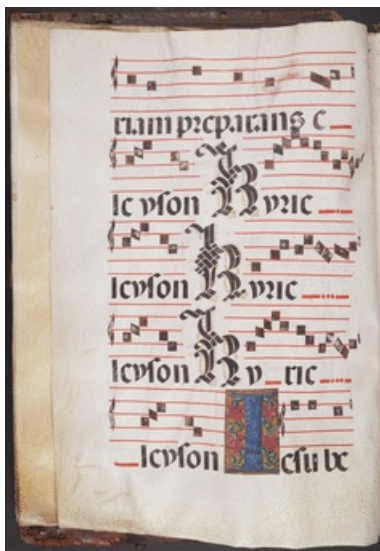 riam preparans e
leyson Kyrie
leyson Kyrie
leyson Ky rie
leyson Iesu be